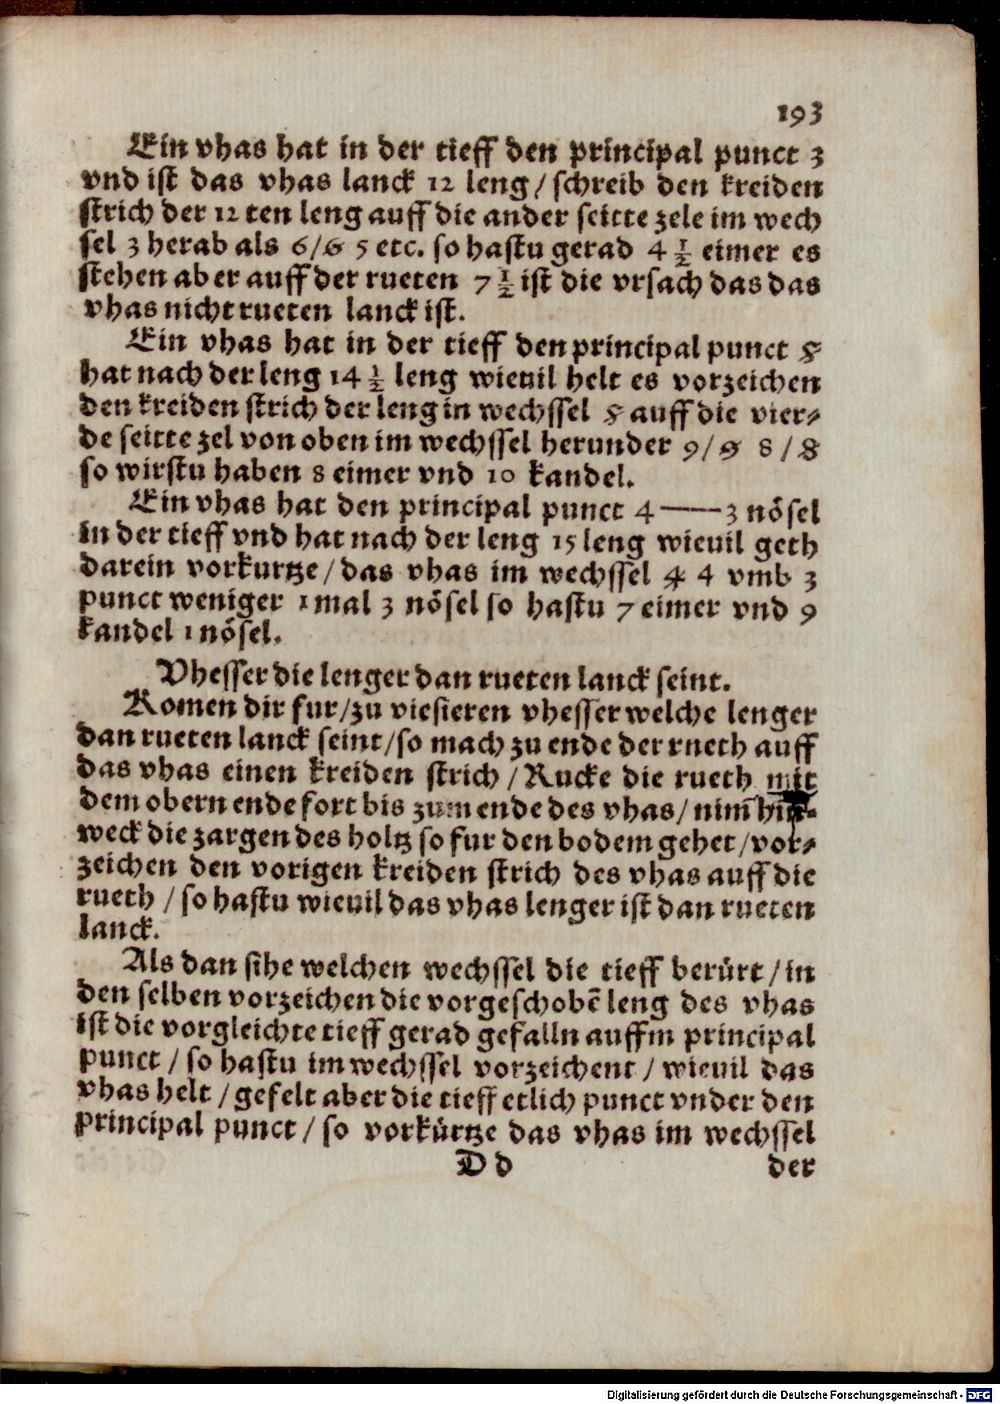 193
Ein vhas hat in der tieff den principal punct 3
vnd ist das vhas lanck 12 leng / schreib den kreiden
strich der 12 ten leng auff die ander seitte zele im wech
sel 3 herab als 6/6̸ 5 etc. so hastu gerad 4 ½ eimer es
stehen aber auff der rueten 7 ½ ist die vrsach das das
vhas nicht rueten lanck ist.
Ein vhas hat in der tieff den principal punct 5̸
hat nach der leng 14 ½ leng wieuil helt es vorzeichen
den kreiden strich der leng in wechssel 5̸ auff die vier-
de seitte zel von oben im wechssel herunder 9/9̸ 8/8̸
so wirstu haben 8 eimer vnd 10 kandel.
Ein vhas hat den principal punct 4——3 nösel
in der tieff vnd hat nach der leng 15 leng wieuil geth
darein vorkurtze / das vhas im wechssel 4̸ 4 vmb 3
punct weniger 1 mal 3 nösel so hastu 7 eimer vnd 9
kandel 1 nösel.
Vhesser die lenger dan rueten lanck seint.
Komen dir fur / zu viesieren vhesser welche lenger
dan rueten lanck seint / so mach zu ende der rueth auff
das vhas einen kreiden strich / Rucke die rueth mit
dem obern ende fort bis zum ende des vhas / nim̄ hin-
weck die zargen des holtz so fur den bodem gehet / vor-
zeichen den vorigen kreiden strich des vhas auff die
rueth / so hastu wieuil das vhas lenger ist dan rueten
lanck.
Als dan sihe welchen wechssel die tieff berürt / in
den selben vorzeichen die vorgeschobē leng des vhas
ist die vorgleichte tieff gerad gefalln auffm principal
punct / so hastu im wechssel vorzeichent / wieuil das
vhas helt / gefelt aber die tieff etlich punct vnder den
principal punct / so vorkürtze das vhas im wechssel
D d der
Digitalisierung gefördert durch die Deutsche Forschungsgemeinschaft - DFG